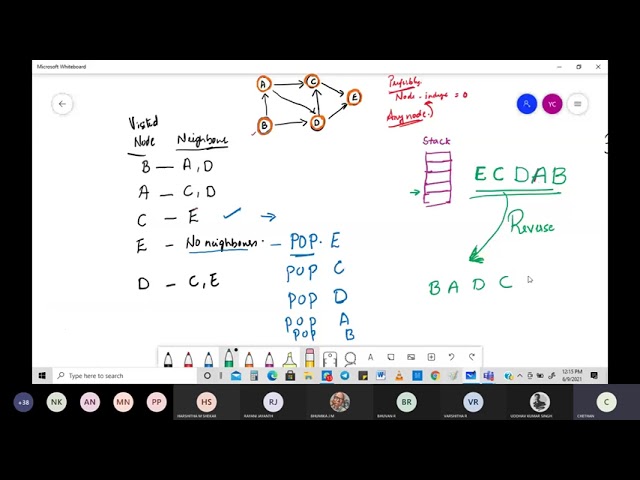 Microsoft Whiteboard
A
C
E
B
D
Preferably
Node - indegree = 0
Any node.)
YC
Visited
Node Neighbours
B — A, D
A — C, D
C — E
E — No neighbours. — POP. E
D — C, E
POP C
POP D
POP A
POP B
Stack
ECDAB
Reverse
B A D C
Type here to search
12:15 PM
6/9/2021
+38
NK
AN
MN
PP
HS
RJ
BR
VR
C
BHUVAN R
VARSHITHA R
UDDHAV KUMAR SINGH
CHETHAN